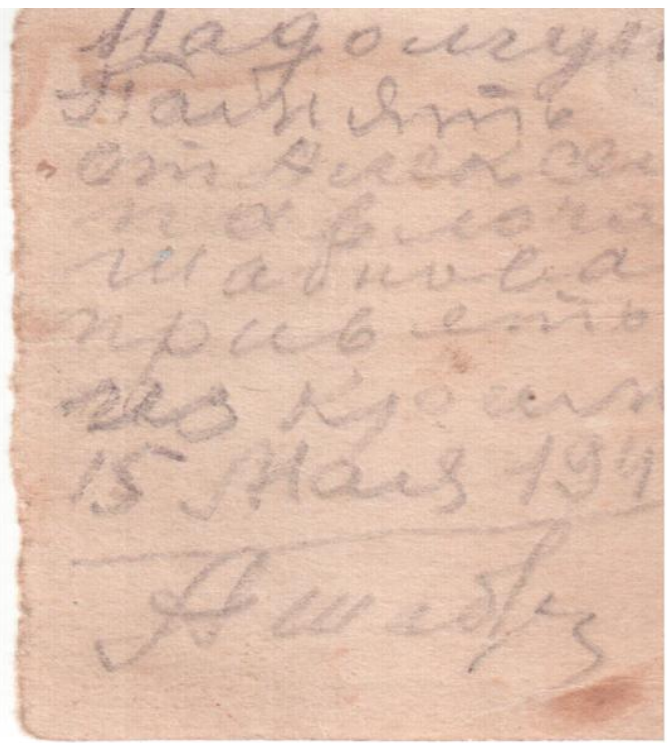 Надолгую
Память
от Алексея
павлова
шабнова
приветь
из Крыма
15 Мая 194
Ашаб